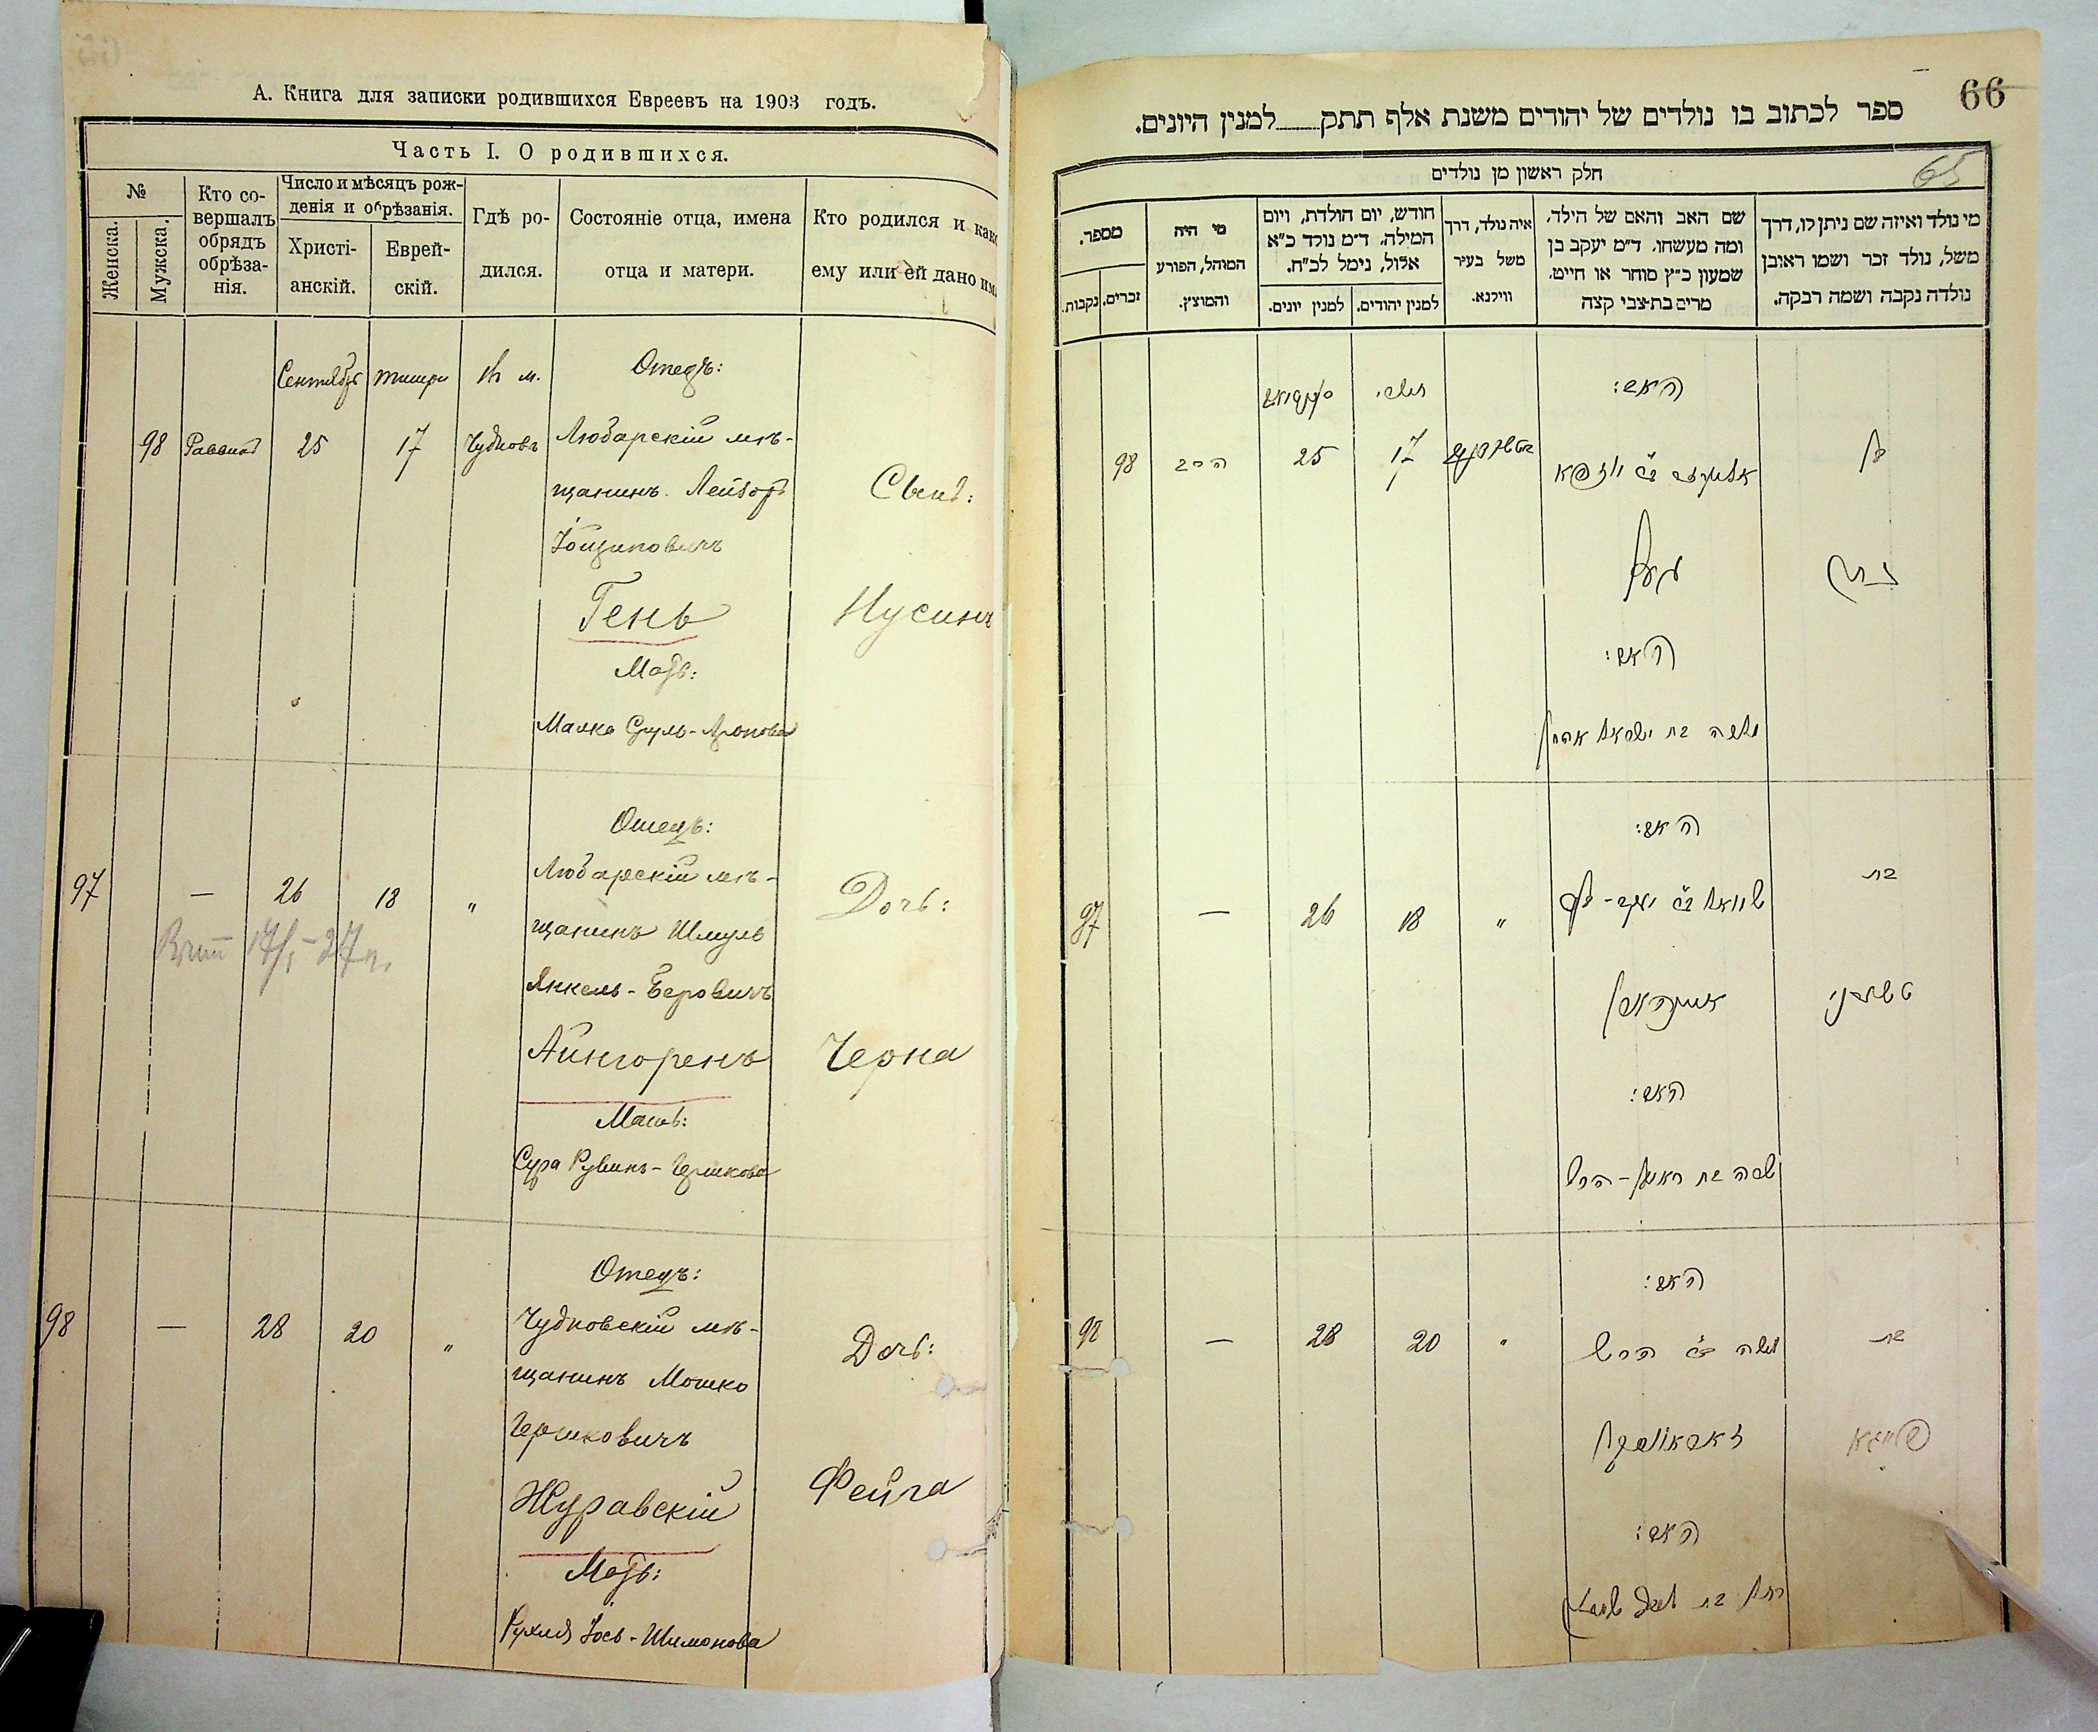 А. Книга для записки родившихся Евреевъ на 1903 годъ.
Часть I. О родившихся.
№
Женска.
Мужска.
Кто со-
вершалъ
обрядъ
обрѣза-
нія.
Число и мѣсяцъ рож-
денія и обрѣзанія.
Христі-
анскій.
Еврей-
скій.
Гдѣ ро-
дился.
Состояніе отца, имена
отца и матери.
Кто родился и како
ему или ей дано им
Сентябрь Тишри
Отецъ:
98 Раввинъ 25 17 Чудновъ Любарскій мѣ-
щанинъ Лейзоръ
Сынъ:
Гень
Нусинъ
Мать:
Малка Сруль-Аронова
Отецъ:
97 — 26 18 „ Любарскій мѣ-
Дочь:
щанинъ Шмуль
Янкель-Беровичъ
Айнгоренъ
Черна
Мать:
Сура Рувинъ-Гершкова
Отецъ:
98 — 28 20 „ Чудновскій мѣ-
щанинъ Мошко
Дочь:
Гершковичъ
Журавскій
Фейга
Мать:
Рухля Іось-Шимонова
66
ספר לכתוב בו נולדים של יהודים משנת אלף תתק למנין היונים.
65
חלק ראשון מן נולדים
מי נולד ואיזה שם ניתן לו, דרך
משל, נולד זכר ושמו ראובן
נולדה נקבה ושמה רבקה.
שם האב והאם של הילד,
ומה מעשהו. ד״מ יעקב בן
שמעון כ״ץ סוחר או חייט.
מרים בת־צבי קצה
איה נולד, דרך
משל בעיר
ווילנא.
חודש, יום הולדת, ויום
המילה. ד״מ נולד כ״א
אלול, נימל לכ״ח.
למנין יהודים.
למנין יונים.
מי היה
המוהל, הפורע
והמוצץ.
מספר.
זכרים.
נקבות.
האב:
תשרי
בן
17
25
הרב
98
נתן
האם:
מלכה בת ישראל אהרן
האב:
בת
שמואל ב״ר יעקב-בער
„
18
26
—
97
האם:
שרה בת ראובן-הרש
האב:
בת
משה ב״ר הרש
„
20
28
—
98
פייגא
האם:
רחל בת יוסף שמעון